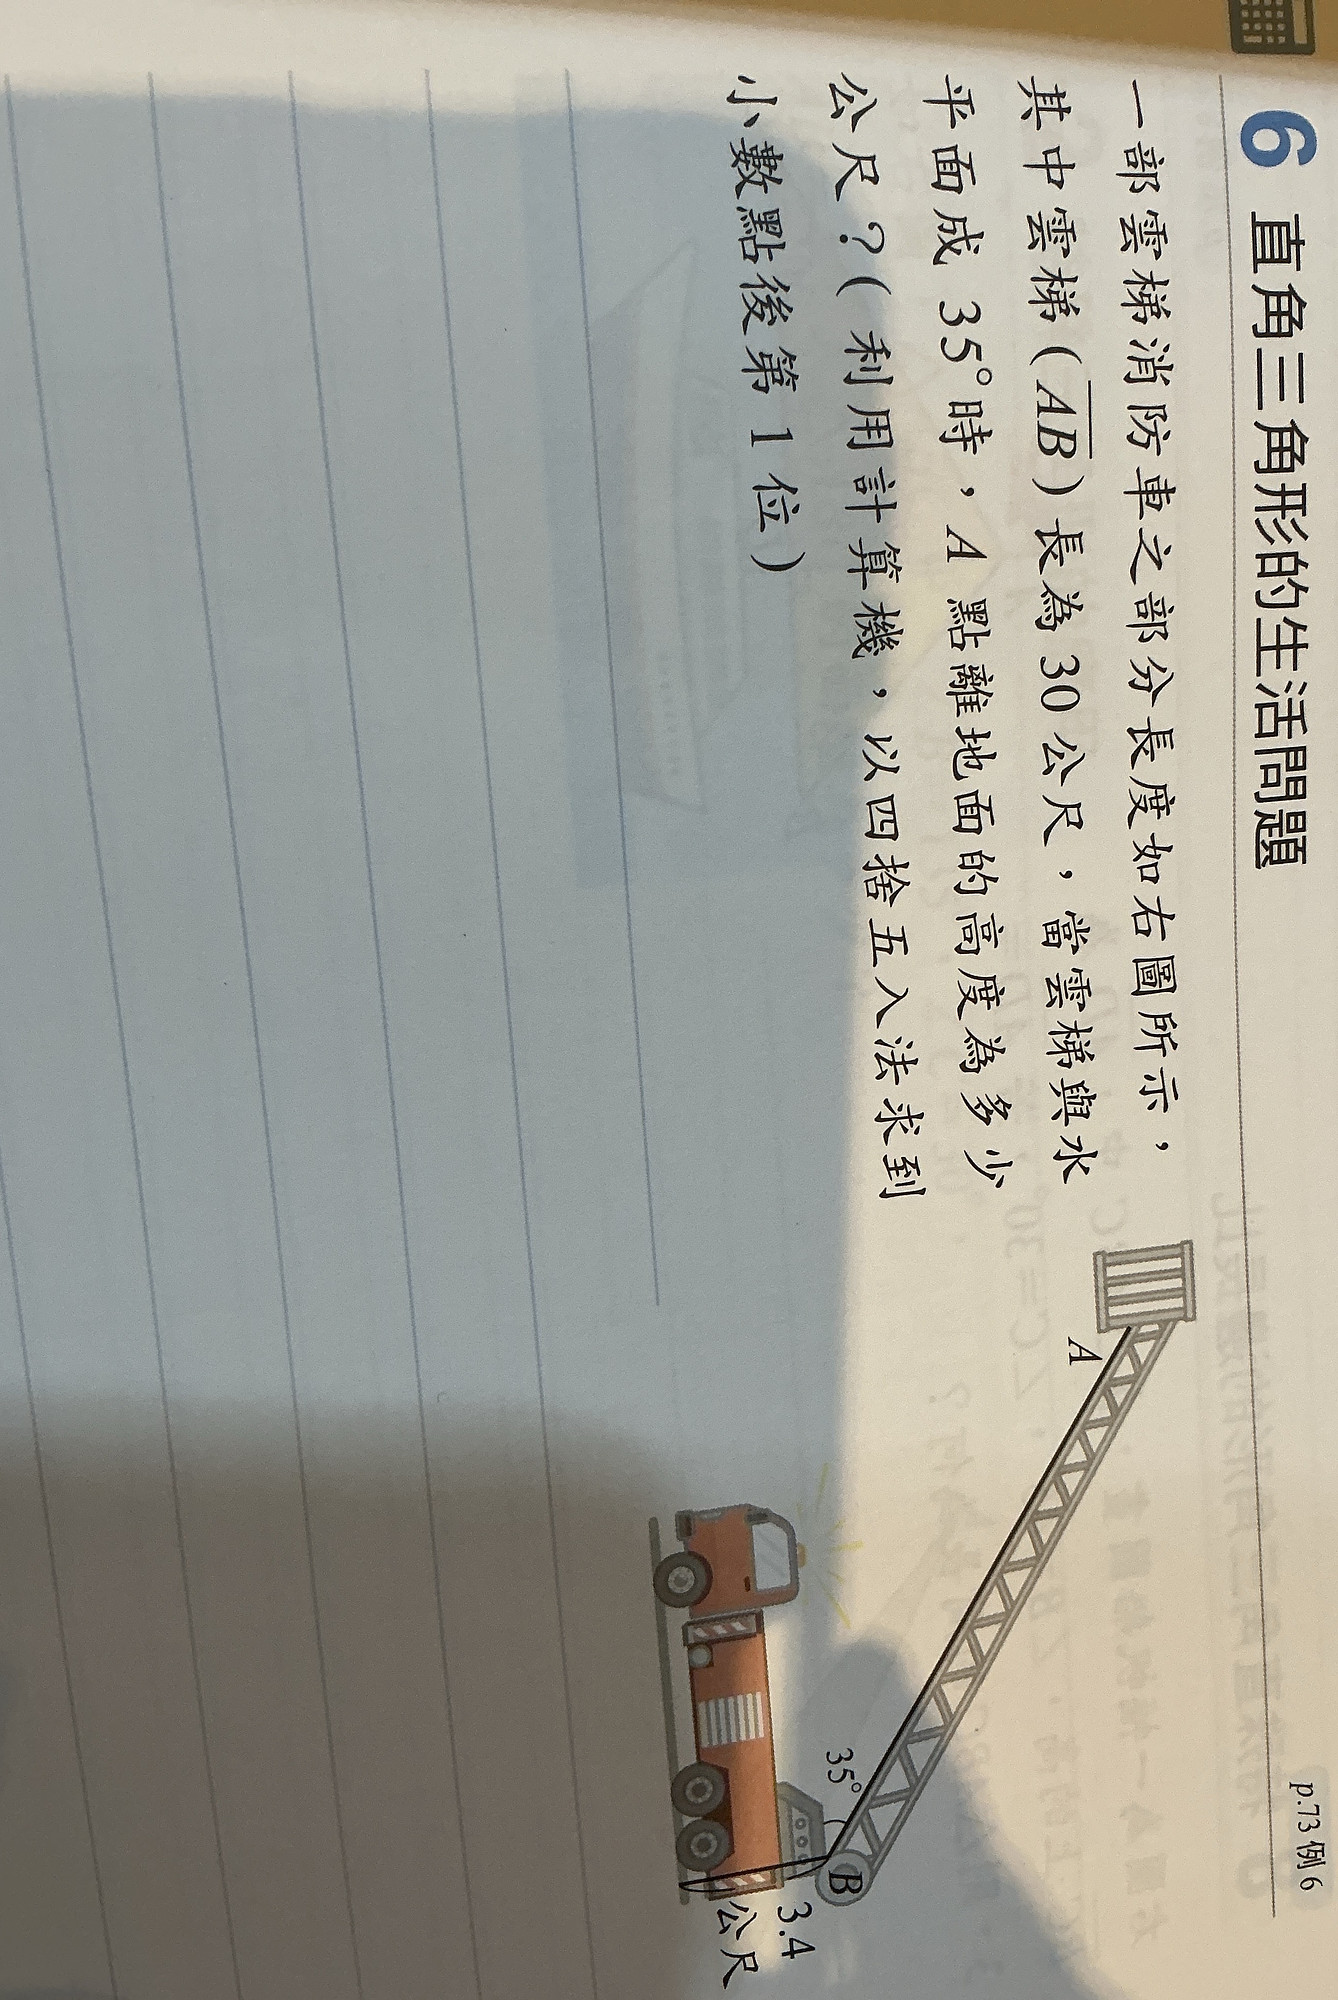 6 直角三角形的生活問題
p.73 例6
一部雲梯消防車之部分長度如右圖所示，
其中雲梯(AB)長為30公尺，當雲梯與水
平面成35°時，A點離地面的高度為多少
公尺？(利用計算機，以四捨五入法求到
小數點後第1位)
A
35°
B
3.4
公尺